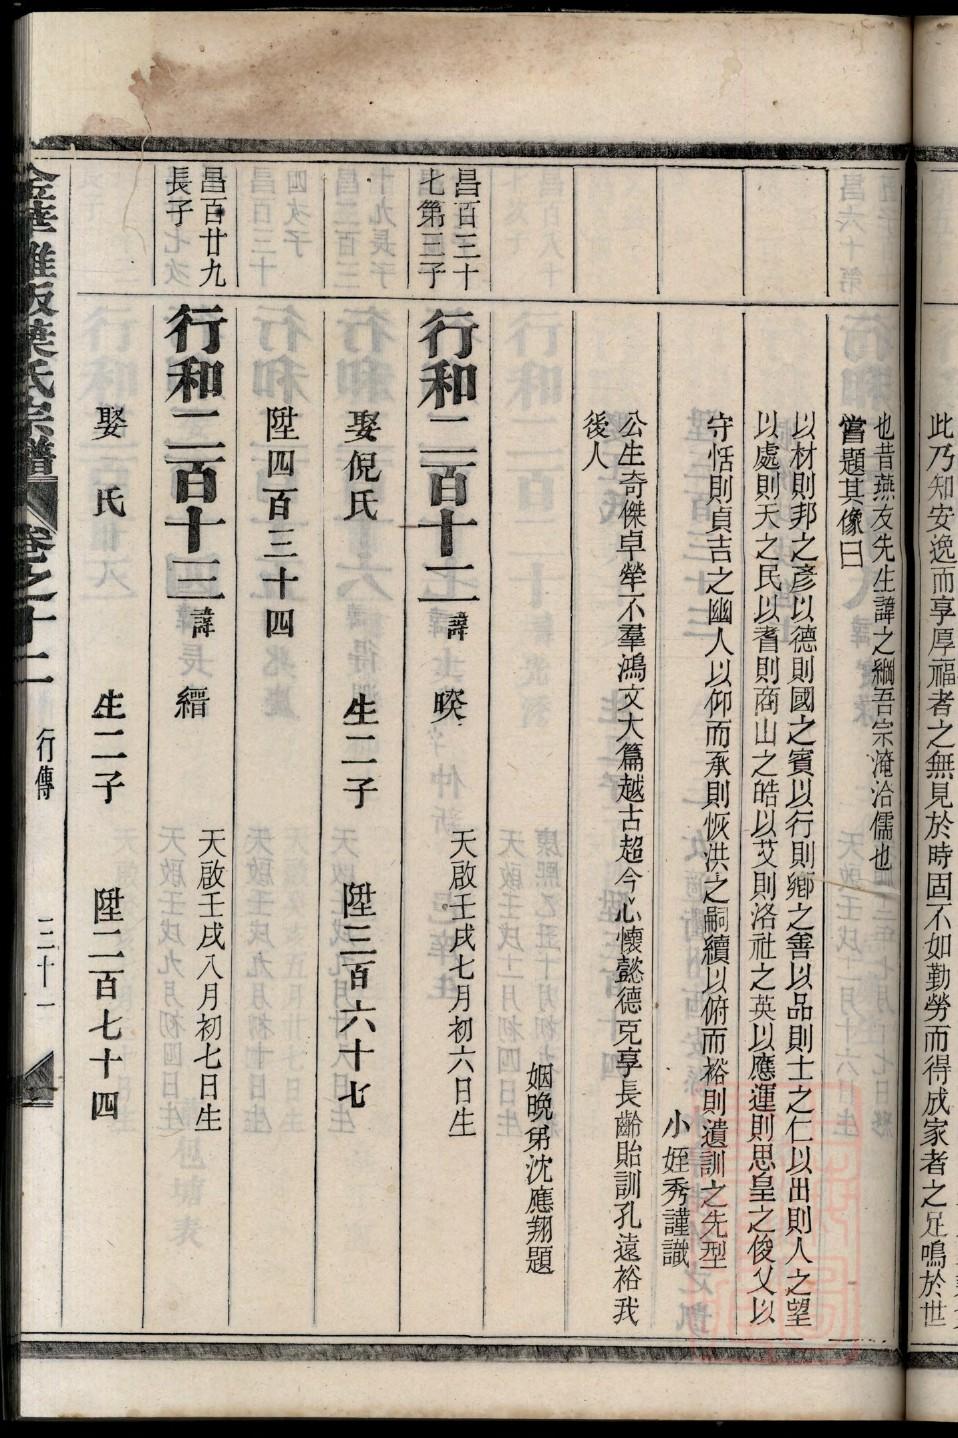 此乃知安逸而享厚福者之無見於時固不如勤勞而得成家者之足鳴於世
也昔燕友先生諱之綱吾宗淹洽儒也
嘗題其像曰
以材則邦之彥以德則國之賓以行則鄉之善以品則士之仁以出則人之望
以處則天之民以耆則商山之皓以艾則洛社之英以應運則思皇之俊乂以
守恬則貞吉之幽人以仰而承則恢洪之嗣續以俯而裕則遺訓之先型
小姪秀謹識
公生奇傑卓犖不羣鴻文大篇越古超今心懷懿德克享長齡貽訓孔遠裕我
後人
姻晚弟沈應翔題
昌百三十
七第三子
行和二百十二諱 㬇 天啟壬戌七月初六日生
娶倪氏 生二子 陞三百六十七
陞四百三十四
昌百廿九
長子
行和二百十三諱 縉 天啟壬戌八月初七日生
娶 氏 生二子 陞二百七十四
金華雅畈葉氏宗譜 卷之十二 行傳 三十一